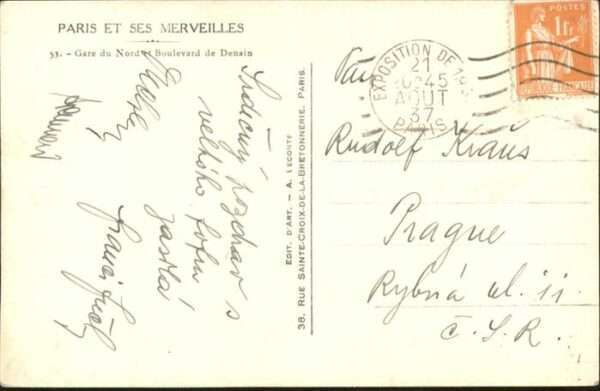 PARIS ET SES MERVEILLES
53. - Gare du Nord et Boulevard de Denain
Srdečný pozdrav s
velkého
zasílá
EDIT. D'ART. - A. LECONTE
38, RUE SAINTE-CROIX-DE-LA-BRETONNERIE, PARIS.
EXPOSITION DE
21
10 45
AOUT
37
PARIS
POSTES
1Fr
Pan
Rudolf Kraus
Prague
Rybná ul. 11.
Č.S.R.